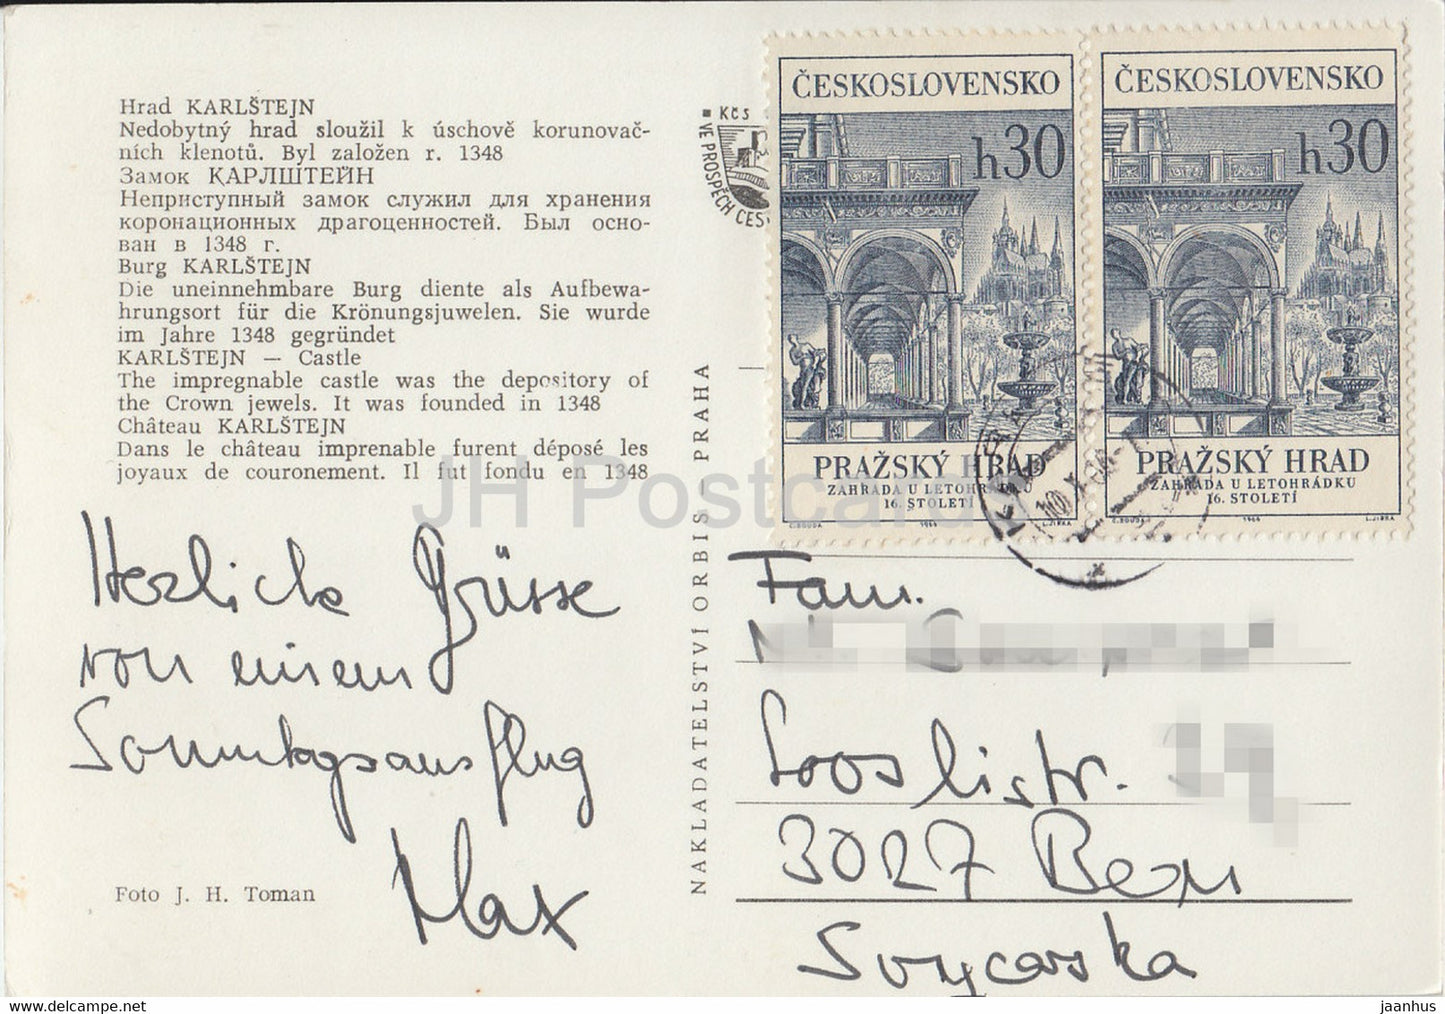 Hrad KARLŠTEJN
Nedobytný hrad sloužil k úschově korunovač-
ních klenotů. Byl založen r. 1348
Замок КАРЛШТЕЙН
Неприступный замок служил для хранения
коронационных драгоценностей. Был осно-
ван в 1348 г.
Burg KARLŠTEJN
Die uneinnehmbare Burg diente als Aufbewa-
hrungsort für die Krönungsjuwelen. Sie wurde
im Jahre 1348 gegründet
KARLŠTEJN — Castle
The impregnable castle was the depository of
the Crown jewels. It was founded in 1348
Château KARLŠTEJN
Dans le château imprenable furent déposé les
joyaux de couronement. Il fut fondu en 1348
Herzliche Grüsse
von einem
Sonntagsausflug
Max
Foto J. H. Toman
NAKLADATELSTVÍ ORBIS – PRAHA
Kčs
VE PROSPĚCH CES
ČESKOSLOVENSKO
h30
PRAŽSKÝ HRAD
ZAHRADA U LETOHRÁDKU
16. STOLETÍ
C. BOUDA 1966 L. JIRKA
ČESKOSLOVENSKO
h30
PRAŽSKÝ HRAD
ZAHRADA U LETOHRÁDKU
16. STOLETÍ
C. BOUDA 1966 L. JIRKA
Fam.
Looslistr.
3027 Bern
Svycarska
JH Postcards
https://www.jhpostcards.com
jaanhus